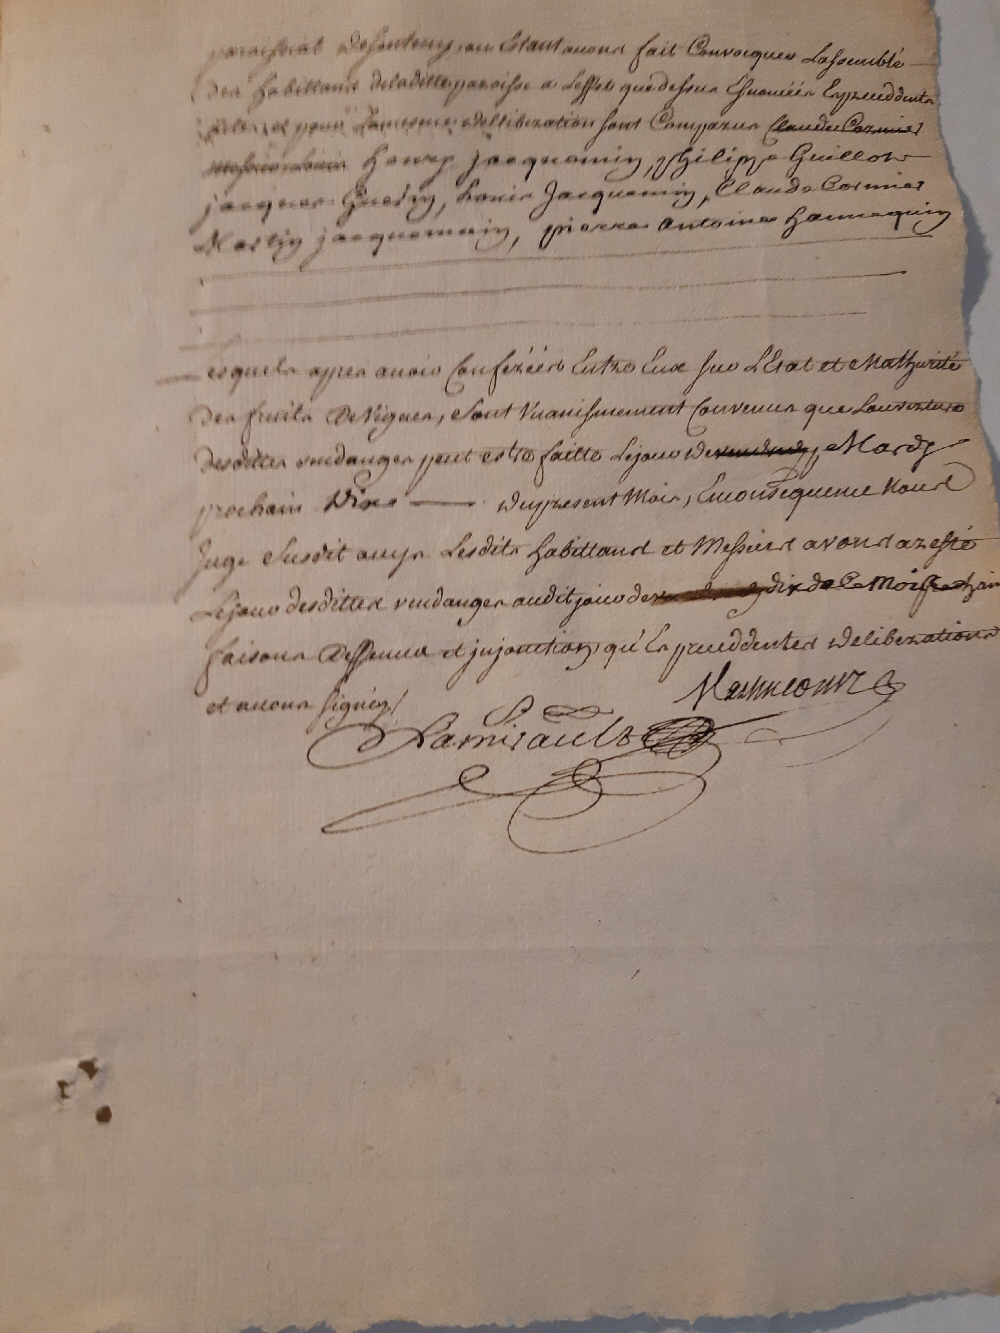 paroissial de fonteny, ou Estant avons fait Convocquer Lassemblé
des habittans de laditte paroisse a Leffet que dessus Enoncéés En preceddente
et pour Lameme deliberation sont Comparus Claude Cormier
henry jacquemin, philippe Guillot
jacques Guerin, Louis Jacquemin, Claude Cormier
Martin jacquemain, pierre Antoine hannequin
Lesquels apres avoir Conférées Entre Eux sur L'Etat et Mathurité
des fruits de Vignes, sont Vnanismement Convenus que Louverture
desdittes vendanges peut estre faitte Le jour de Mardy
prochain Dix du present Mois, En Consequence Nous
Juge susdit avec Lesdits habittans et Messiers avons aresté
Le jour desdittes vendanges audit jour dix de ce Mois prochain
faisons deffences et jnjonction qu'En precedentes deliberations
et avons signéz
Lamirault